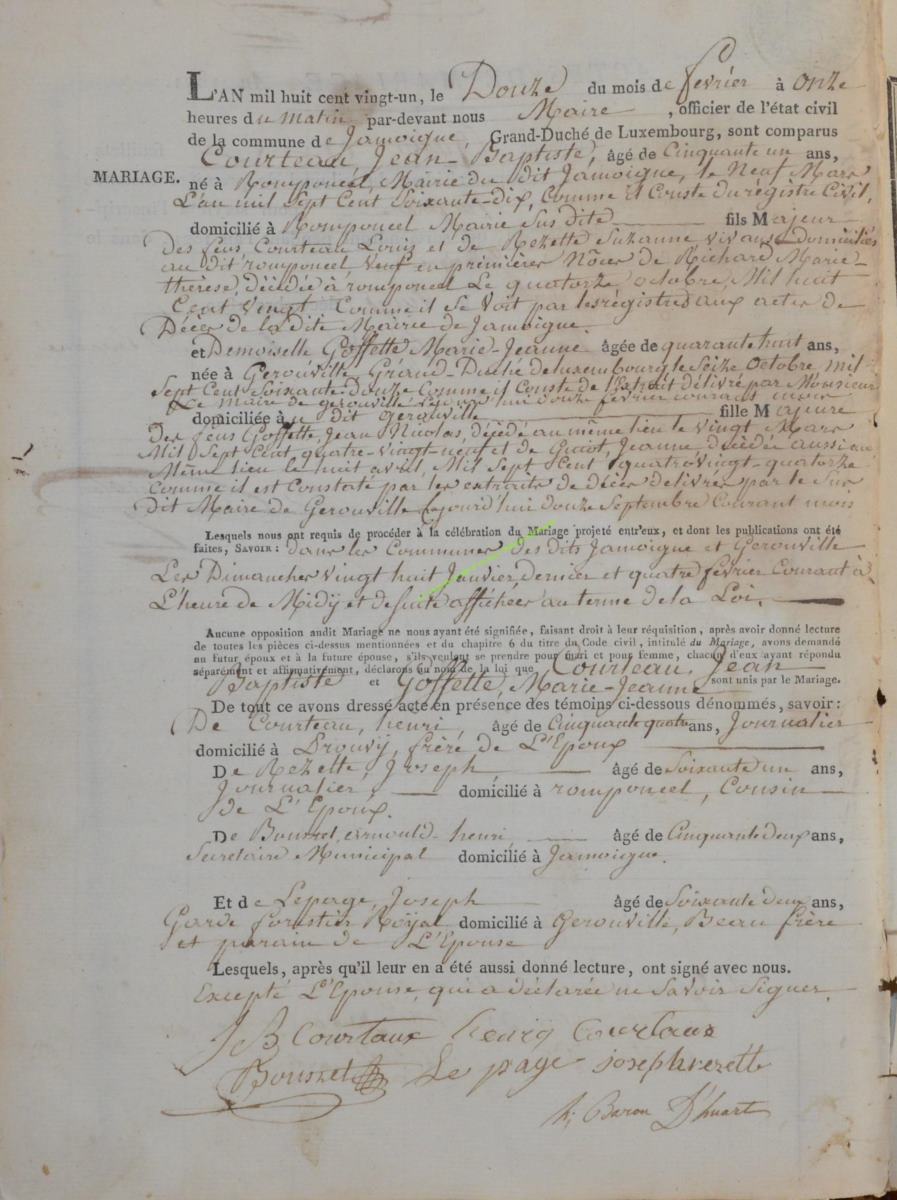 L'AN mil huit cent vingt-un, le Douze du mois de février à onze
heures du matin par-devant nous Maire, officier de l'état civil
de la commune de Jamoigne, Grand-Duché de Luxembourg, sont comparus
Courteau, Jean-Baptiste, âgé de Cinquante un ans,
MARIAGE.
né à Romponcel, Mairie du dit Jamoigne, le Neuf Mars
L'an mil Sept Cent Soixante-dix, Comme il Conste du régistre Civil,
domicilié à Romponcel Mairie Sus dite fils Majeur
Des feus Courteau Louis et de Rezette Suzanne vivans domiciliés
au dit romponcel, veuf en premières Nôces de Richard Marie-
thérèse, décédée à romponcel Le quatorze octobre, Mil huit
Cent Vingt Comme il Se Voit par les registres aux actes de
Décès de la dite Mairie de Jamoigne.
et Demoiselle Goffette Marie-Jeanne âgée de quarante huit ans,
née à Gerouville Grand-Duché de Luxembourg le Seize Octobre, mil
Sept Cent Soixante-Douze Comme il Conste de l'Extrait délivré par Monsieur
Le Maire de gerouville douze février courant mois
domiciliée au dit gerouville fille Majeure
Des feus Goffette, Jean Nicolas, décédé au même lieu le vingt Mars
Mil Sept Cent, quatre-vingt-neuf et de Guiot, Jeanne, décédée aussi au
Même lieu le huit avril, Mil Sept Cent quatrevingt-quatorze
Comme il est Constaté par les extraits de décès delivrés par le Sus
dit Maire de Gerouville Cejourd'hui douze Septembre Courant mois
Lesquels nous ont requis de procéder à la célébration du Mariage projeté entr'eux, et dont les publications ont été
faites, SAVOIR : dans les Communes des dits Jamoigne et Gerouville
Les Dimanches vingt huit Janvier dernier et quatre février Courant à
L'heure de Midÿ et de Suite affichées au terme de la Loi.
Aucune opposition audit Mariage ne nous ayant été signifiée, faisant droit à leur réquisition, après avoir donné lecture
de toutes les pièces ci-dessus mentionnées et du chapitre 6 du titre du Code civil, intitulé du Mariage, avons demandé
au futur époux et à la future épouse, s'ils veulent se prendre pour mari et pour femme, chacun d'eux ayant répondu
séparément et affirmativement, déclarons au nom de la loi que Courteau, Jean
Baptiste et Goffette, Marie-Jeanne sont unis par le Mariage.
De tout ce avons dressé acte en présence des témoins ci-dessous dénommés, savoir :
De Courteau, henri, âgé de Cinquante quatre ans, Journalier
domicilié à Prouvÿ, frère de L'Epoux
De Rezette, Joseph, âgé de Soixante un ans,
Journalier, domicilié à romponcel, Cousin
de L'Epoux.
De Bousset, ernould-henri, âgé de Cinquante deux ans,
Secretaire Municipal domicilié à Jamoigne.
Et de Lepage, Joseph âgé de Soixante deux ans,
Garde forestier Royal domicilié à Gerouville, Beau frère
et parain de L'Epouse
Lesquels, après qu'il leur en a été aussi donné lecture, ont signé avec nous.
Excepté L'Epouse, qui a déclarée ne Savoir Signer.
JB Courtaux henrÿ Courtaux
Bousset Le page joseph rezette
h; Baron D'huart